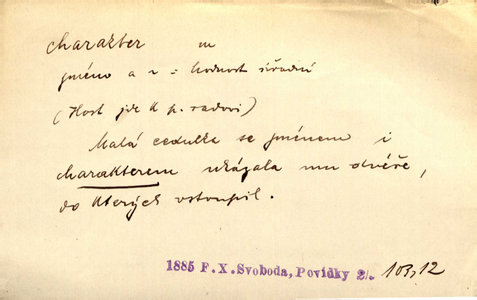 charakter m
jméno a r = hodnost úřadní
(Host jde k p. radovi)
Malá cedulka se jménem i
charakterem ukázala mu dvéře,
do kterých vstoupil.
1885 F. X. Svoboda, Povídky 2/. 103, 12